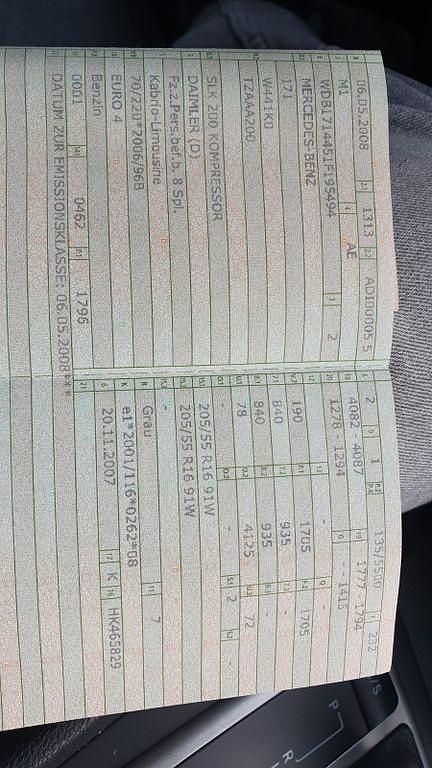 06.05.2008 1313 ADI00005 5
M1 AE
WDB1714451F195494 2
MERCEDES-BENZ
171
W441K0
TZAAA200
SLK 200 KOMPRESSOR
DAIMLER (D)
Fz.z.Pers.bef.b. 8 Spl.
Kabrio-Limousine
70/220*2006/96B
EURO 4
Benzin
0001 0462 1796
DATUM ZUR EMISSIONSKLASSE: 06.05.2008***
2 1 135/5500 232
4082 - 4087 1777 - 1794
1278 - 1294 - - 1415
190 - 1705 1705
840 935 -
840 935 -
78 4125 72
- - 2 -
205/55 R16 91W
205/55 R16 91W
-
Grau 7
e1*2001/116*0262*08
20.11.2007 K HK465829
P
R